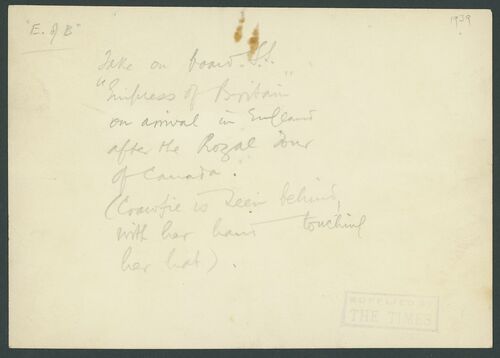 "E. of B"
1939
Take on board S.S.
"Empress of Britain"
on arrival in England
after the Royal Tour
of Canada.
(Crawfie is seen behind,
with her hand touching
her hat).
SUPPLIED BY
THE TIMES